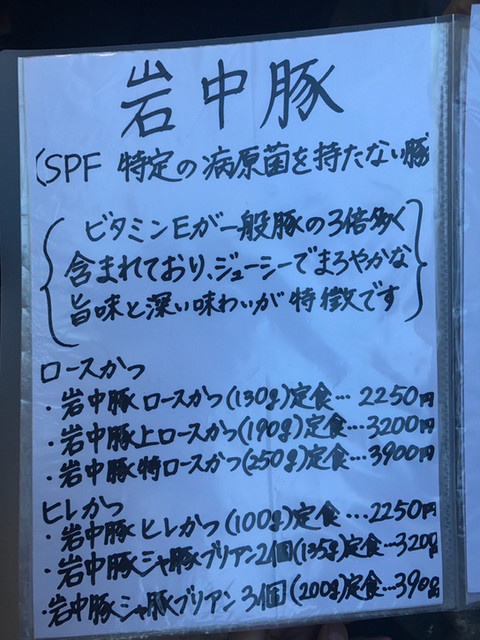 岩中豚
(SPF 特定の病原菌を持たない豚
ビタミンEが一般豚の3倍多く
含まれており、ジューシーでまろやかな
旨味と深い味わいが特徴です
ロースかつ
・岩中豚ロースかつ(130g)定食…2250円
・岩中豚上ロースかつ(190g)定食…3200円
・岩中豚特ロースかつ(250g)定食…3900円
ヒレかつ
・岩中豚ヒレかつ(100g)定食…2250円
・岩中豚シャ豚ブリアン2個(135g)定食…3200円
・岩中豚シャ豚ブリアン3個(200g)定食…3900